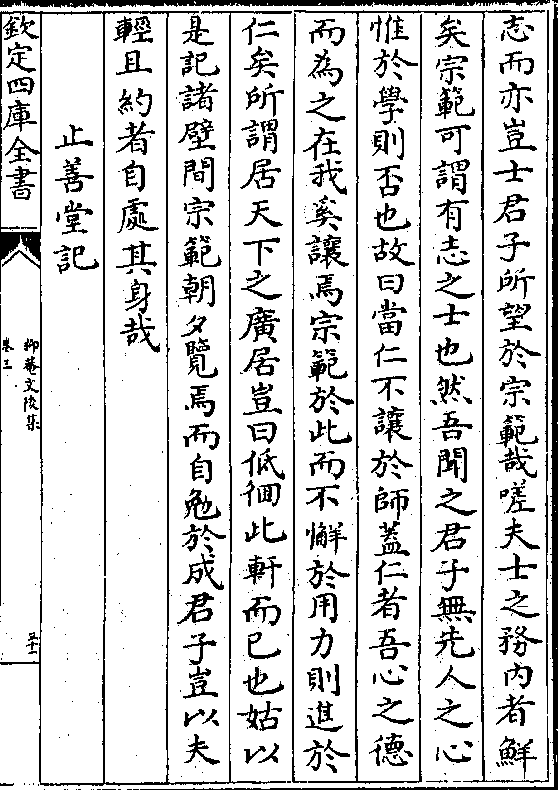 志而亦豈士君子所望於宗範哉嗟夫士之務内者鮮
矣宗範可謂有志之士也然吾聞之君子無先人之心
惟於學則否也故曰當仁不讓於師蓋仁者吾心之德
而為之在我奚讓焉宗範於此而不懈於用力則進於
仁矣所謂居天下之廣居豈曰低徊此軒而已也姑以
是記諸壁間宗範朝夕覽焉而自勉於成君子豈以夫
輕且約者自處其身哉
止善堂記
欽定四庫全書
抑菴文後集
卷三